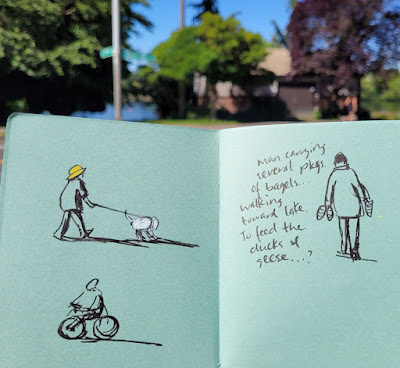 man carrying
several pkgs.
of bagels...
walking
toward lake.
To feed the
ducks &
geese...?